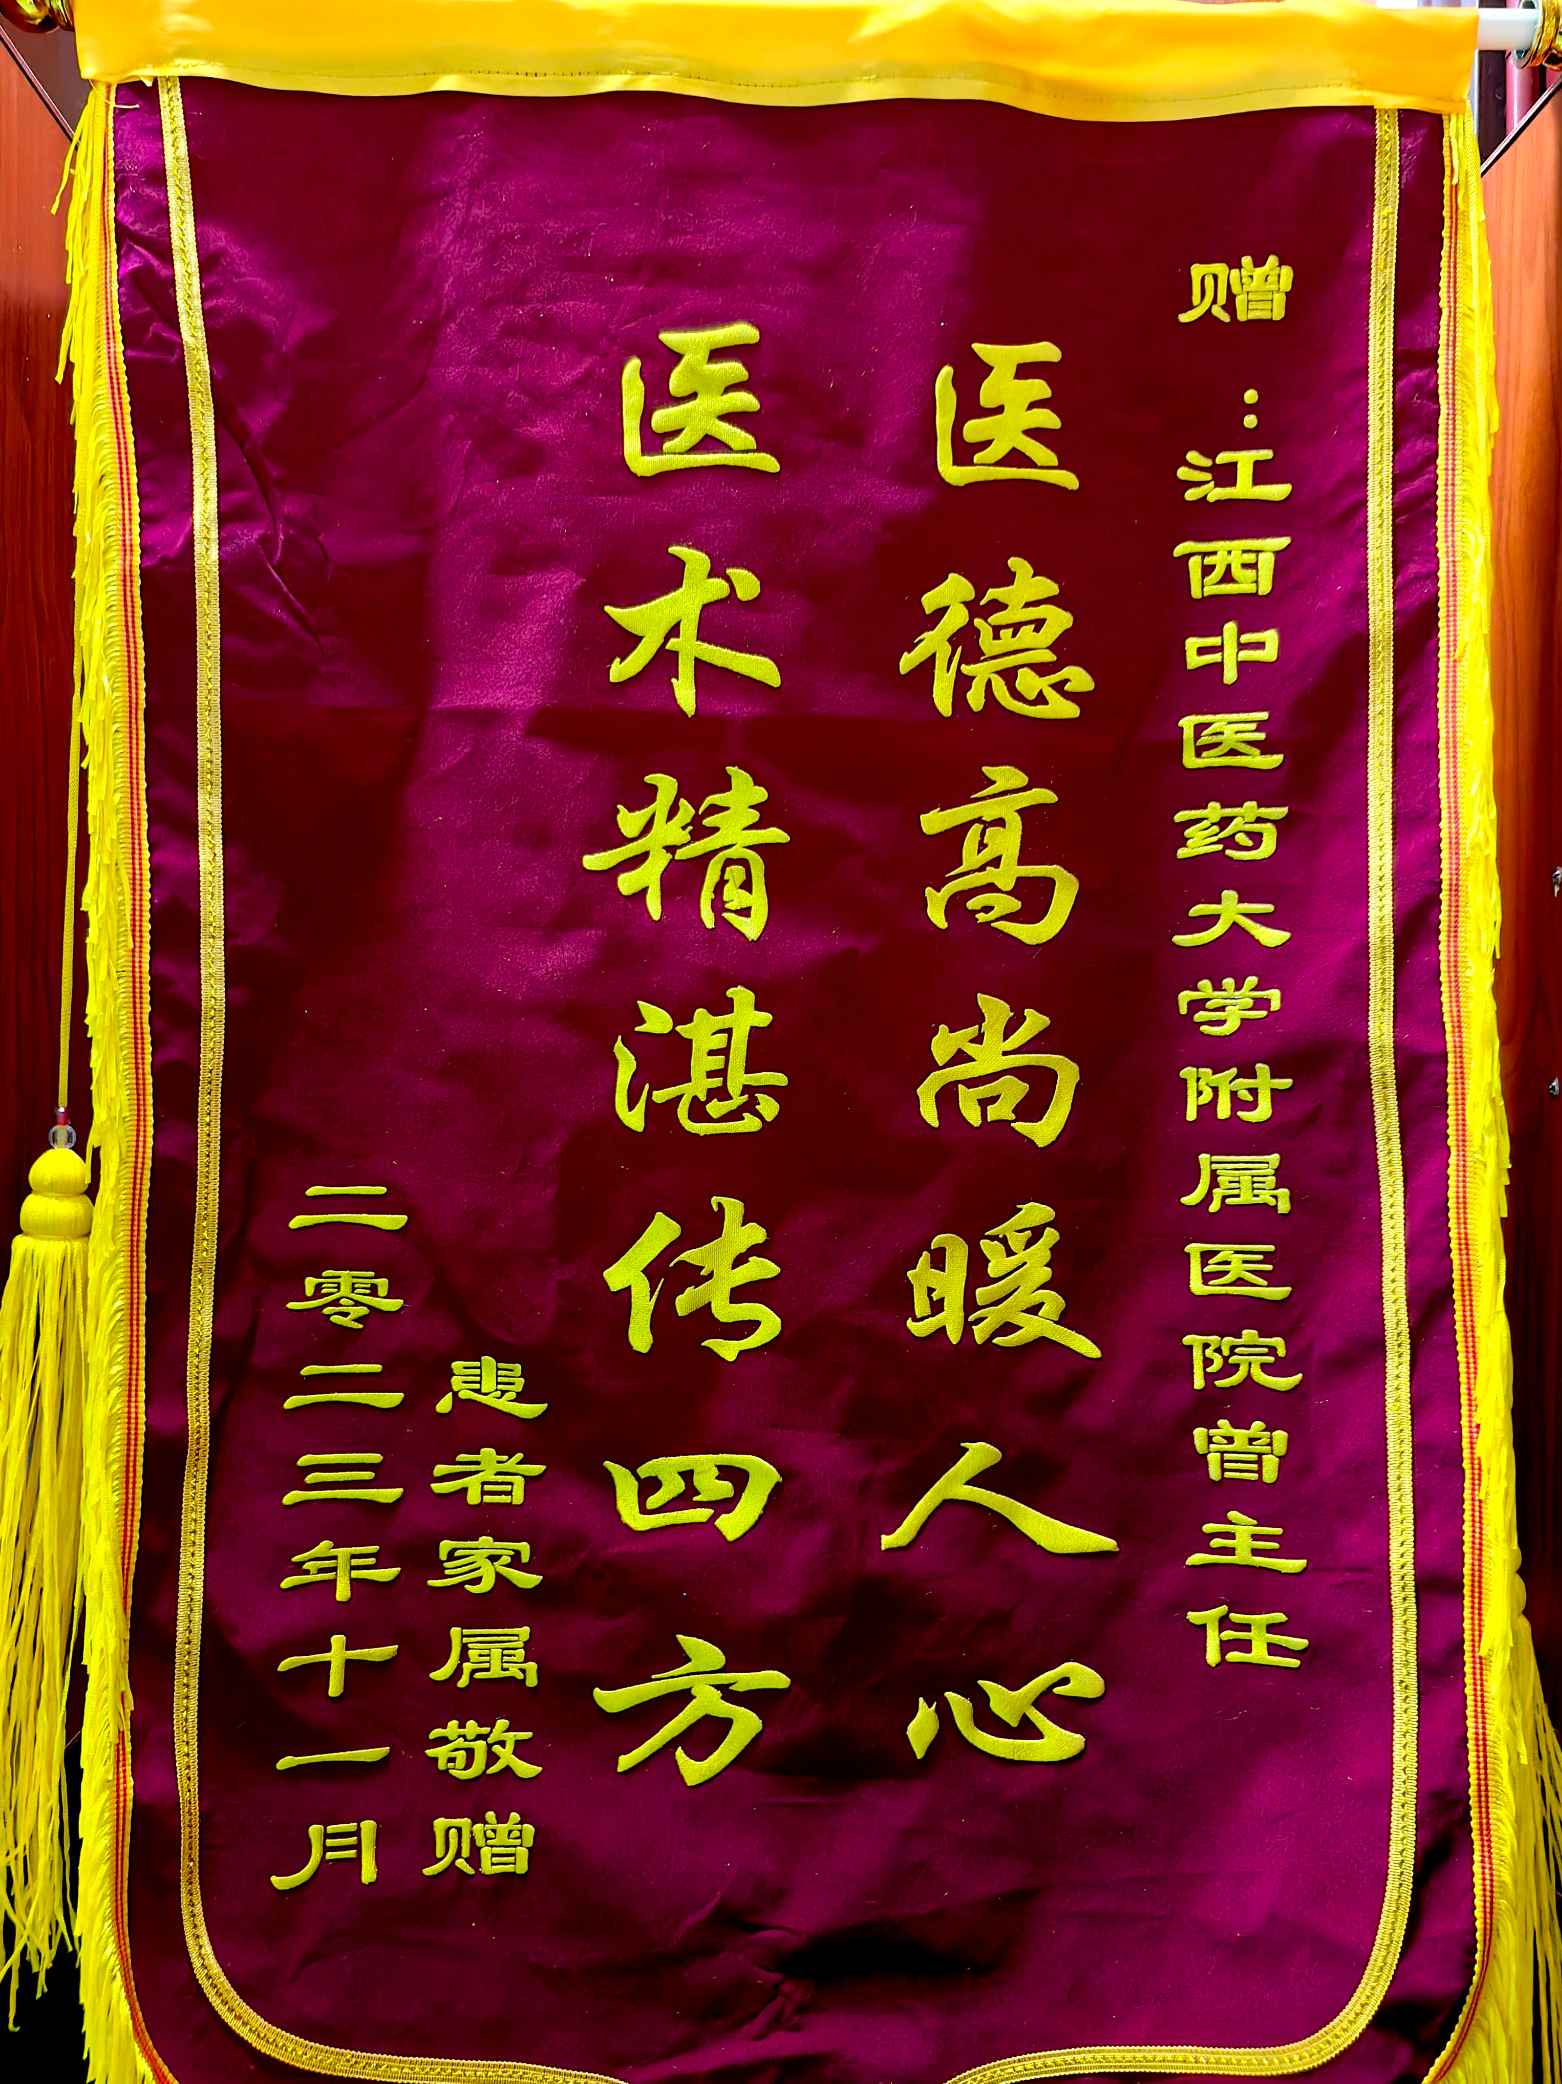 赠：江西中医药大学附属医院曾主任
医德高尚暖人心
医术精湛传四方
患者家属敬赠
二零二三年十一月